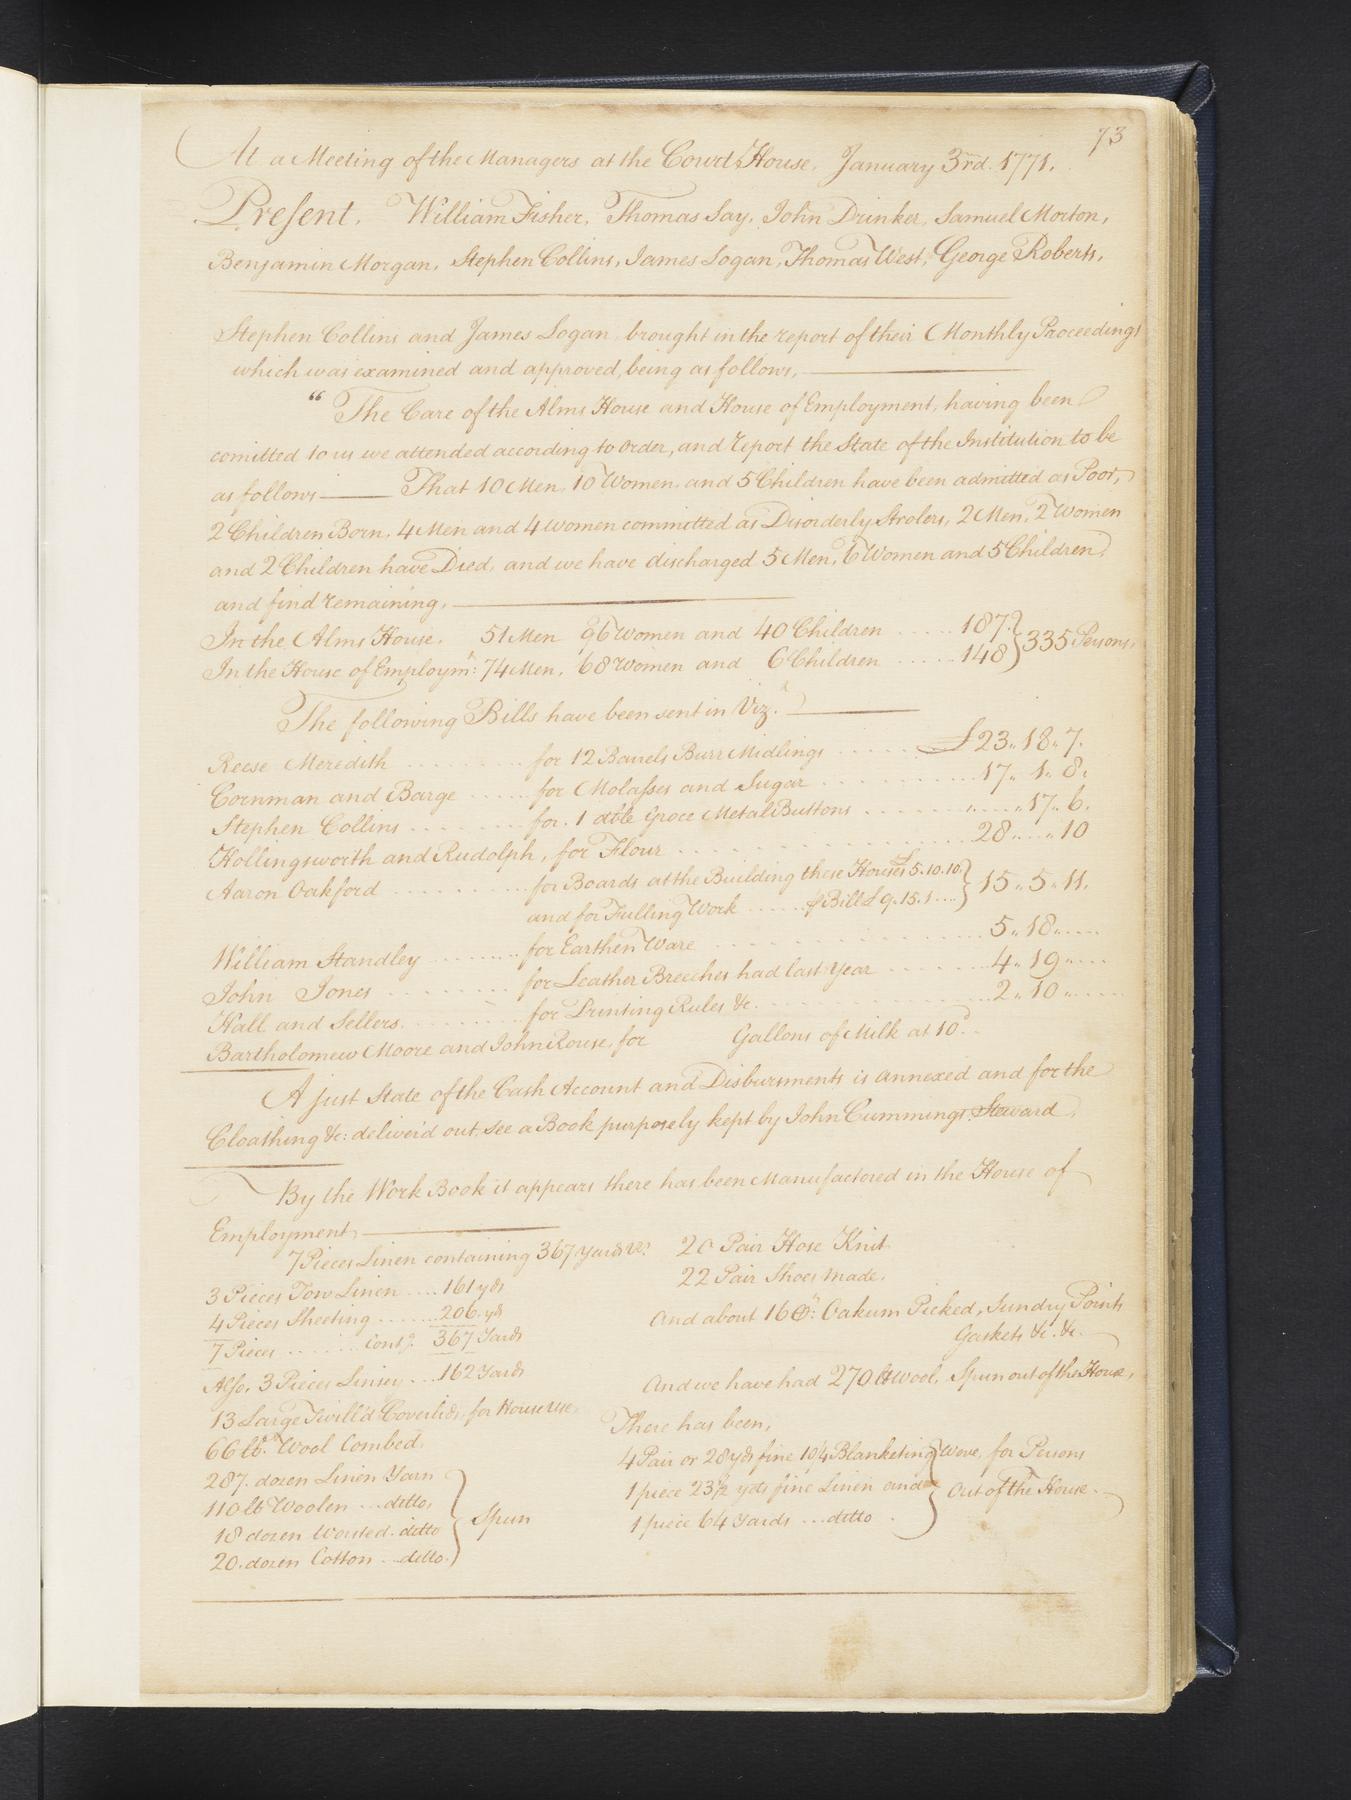 73
At a Meeting of the Managers at the Court House, January 3rd. 1771.
Present. William Fisher, Thomas Say, John Drinker, Samuel Morton,
Benjamin Morgan, Stephen Collins, James Logan, Thomas West, George Roberts,
Stephen Collins and James Logan, brought in the report of their Monthly Proceedings
which was examined and approved, being as follows,
“ The Care of the Alms House and House of Employment, having been
comitted to us we attended according to Order, and report the State of the Institution to be
as follows — That 10 Men, 10 Women, and 5 Children have been admitted as Poor,
2 Children Born, 4 Men and 4 Women committed as Disorderly Strolers, 2 Men, 2 Women
and 2 Children have Died, and we have discharged 5 Men, 6 Women and 5 Children,
and find remaining,
In the Alms House. 51 Men 96 Women and 40 Children ..... 187 } 335 Persons,
In the House of Employmt: 74 Men, 68 Women and 6 Children ..... 148
The following Bills have been sent in Vizt.
Reese Meredith ........ for 12 Barrels Burr Midlings ..... £23,, 18,, 7.
Cornman and Barge ...... for Molasses and Sugar .......... 17,, 1,, 8.
Stephen Collins ........ for 1 dble Groce Metal Buttons ........ ,, .... ,, 17,, 6.
Hollingsworth and Rudolph, for Flour .............. 28 ,, ... ,, 10
Aaron Oakford .......... for Boards at the Building these Houses £5.10.10 } 15,, 5,, 11.
and for Fulling Work ...... ⅌ Bill £9.15.1 ....
William Standley ......... for Earthen Ware .............. 5,, 18 ,, .....
John Jones ......... for Leather Breeches had last Year ....... 4,, 19 ,, ....
Hall and Sellers. ........ for Printing Rules &c. ............. 2,, 10 ,, .....
Bartholomew Moore and John Rouse, for Gallons of Milk at 10d..
A just State of the Cash Account and Disbursments is annexed and for the
Cloathing &c: deliver'd out, see a Book purposely kept by John Cummings, Steward
By the Work Book it appears there has been Manufactored in the House of
Employment,
7 Pieces Linen containing 367 Yards Vizt
3 Pieces Tow Linen .... 161 yds
4 Pieces Sheeting ....... 206. yds
7 Pieces ....... Contg. 367 Yards
Also, 3 Pieces Linsey ... 162 Yards
13 Large Twill'd Coverlids, for House Use.
66 lb. Wool Combed,
287. dozen Linen Yarn
110 lb Woolen ... ditto,
18 dozen Worsted. ditto
20. dozen Cotton ... ditto.
} Spun
20 Pair Hose Knit
22 Pair Shoes made.
And about 16 Ct: Oakum Picked, Sundry Points
Gaskets &c. &c.
And we have had 270 lb Wool, Spun out of the House,
There has been,
4 Pair or 28 yds fine 10/4 Blanketing } Wove, for Persons
1 piece 23½ yds fine Linen and } Out of the House.
1 piece 64 Yards ... ditto.